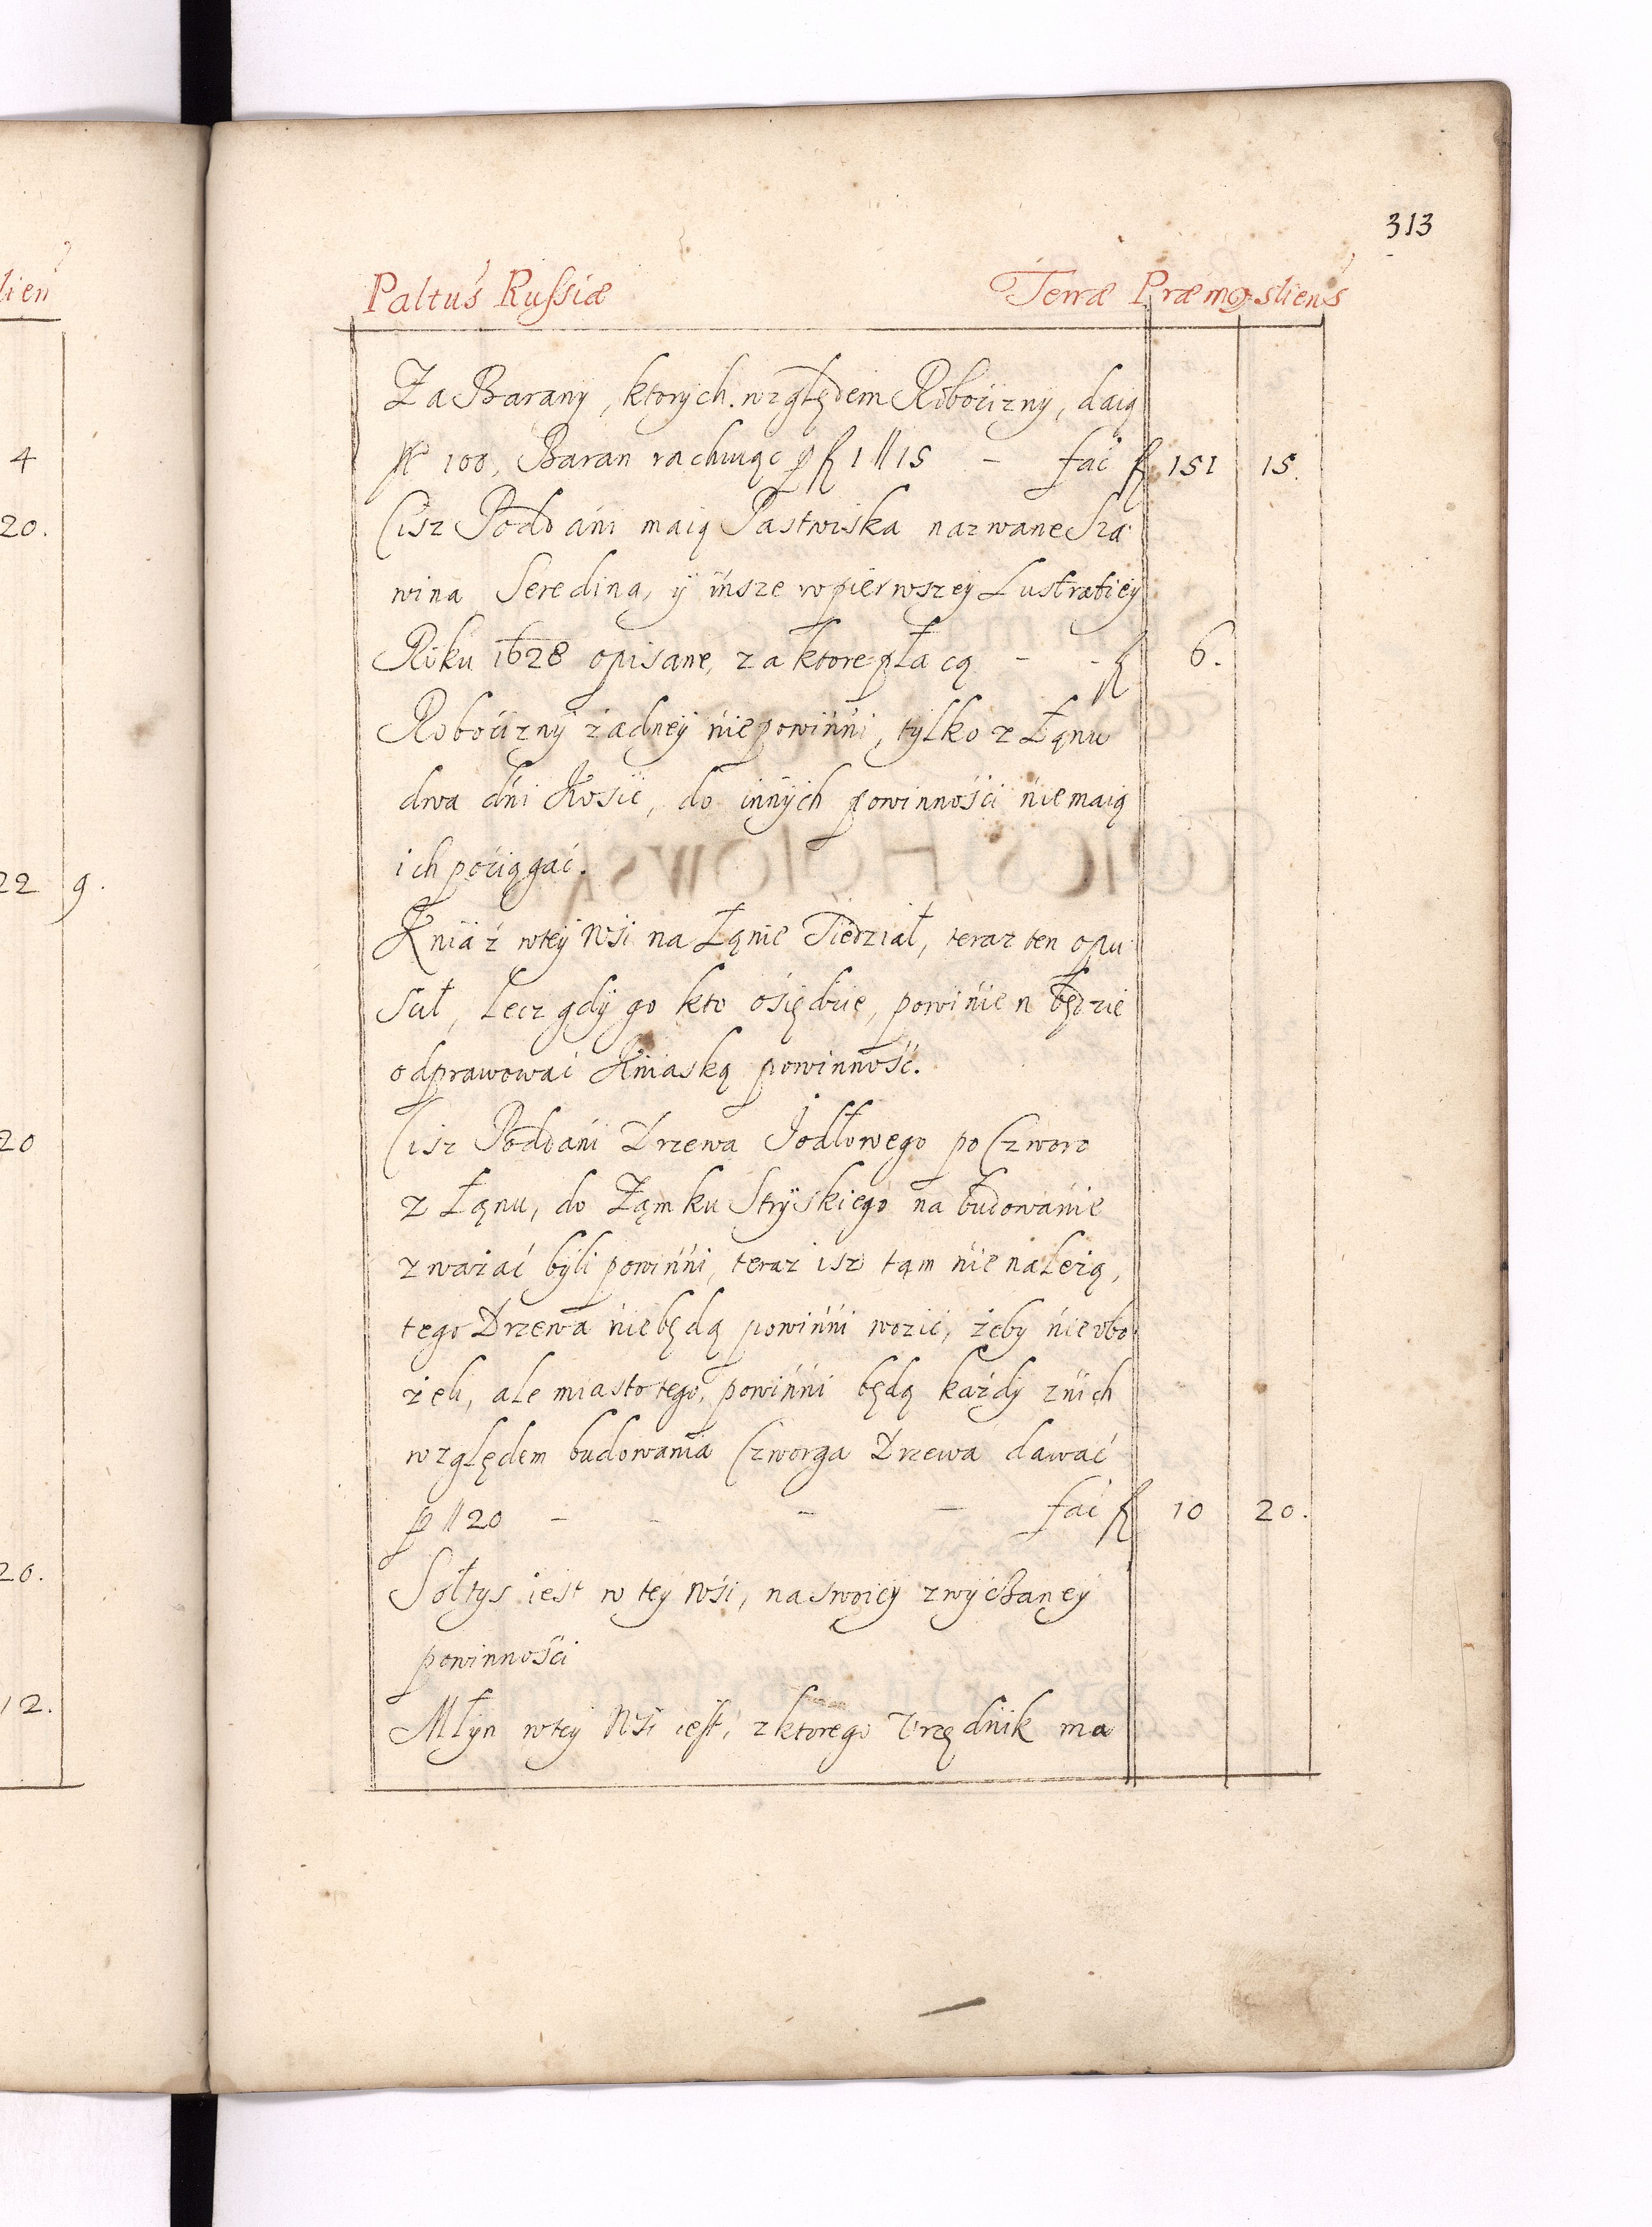 313
Paltus Russiæ Terræ Præmysliens
Za Barany, ktorych względem Robocizny, daią
N 100, Baran rachuiąc p f 1 // 15 - fać f 151 15.
Cisz Poddani maią Pastwiska nazwane Sza
wina Seredina, y insze w pierwszey Lustratiey
Roku 1628 opisane, za ktore płacą - - f 6.
Robocizny żadney nie powinni, tylko z Łąnu
dwa dni Kosić, do innych powinności nie maią
ich pociągać.
Kniaź w tey Wsi na Łąnie Siedział, teraz ten opu
scił, Lecz gdy go kto osiędzie, powinien będzie
odprawować Kniaską powinność.
Cisz Poddani Drzewa Jodłowego po Czworo
z Łąnu, do Ząmku Stryiskiego na budowanie
zważać byli powinni, teraz isz tąm nie należą,
tego Drzewa nie będą powinni wozić, żeby nie vbo
żeli, ale miasto tego, powinni będą każdy z nich
względem budowania Czworga Drzewa dawać
p // 20 - - - - fać f 10 20.
Sołtys iest w tey Wsi, na swoiey zwyczaney
powinności
Młyn w tey Wsi iest, z ktorego Vrzędnik ma
lien
4
20.
22 9.
20
20.
12.